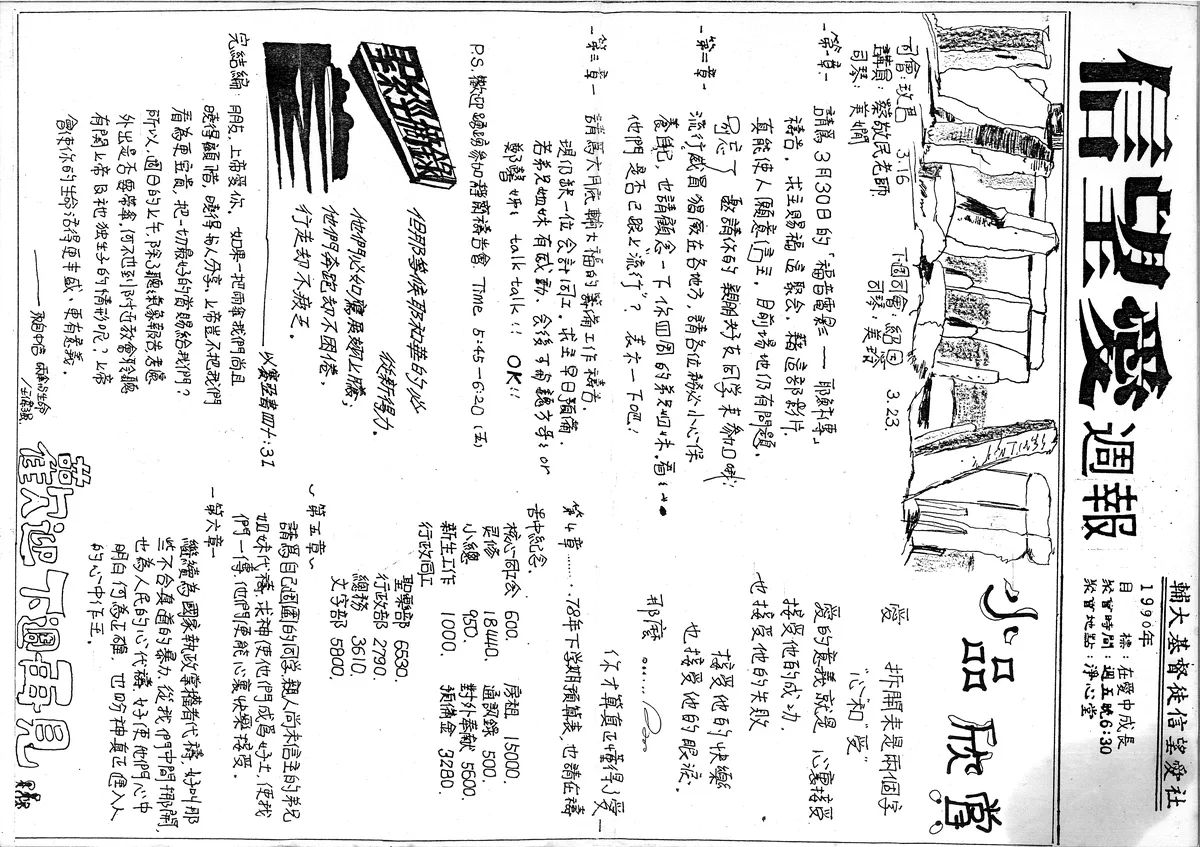 信望愛週報
輔大基督徒信望愛社
1990年
目 標：在愛中成長
聚會時間：週五晚6:30
聚會地點：淨心堂
可倫坡門 3.16
講員：蔡敬民老師
司琴：美嫺
下週同會：紹國 3.23.
司琴：美玲
-第一章-
請為3月30日的「福音電影」——耶穌傳」
禱告，求主賜福這聚會，藉這部影片，
真能使人願意信主，目前場地仍有問題，
別忘了 邀請你的親朋好友同學來參加哦！
-第二章-
流行感冒猖厥在各地方，請各位務必小心保
養自己，也請顧念一下你周圍的弟兄姐妹，看看……
他們是否已跟上"流行"？表示一下吧！
-第三章-
請為六月底輔大福的籌備工作禱告。
現仍缺一位會計同工，求主早日預備，
若弟兄姐妹有感動，會後可南聽方哥or
鄭馨姊 talk talk!! OK!!
P.S. 歡迎踴躍參加靜南禱告會 Time 5:45-6:20 (五)
聖經特報
但那等候耶和華的必
從新得力。
他們必如鷹展翅上騰；
他們奔跑卻不困倦，
行走卻不疲乏。
——以賽亞書四十：31
完結編：朋友，上帝愛你，如果一把雨傘我們尚且
曉得顧惜，曉得與人分享，上帝豈不把我們
看為更寶貴，把一切最好的賞賜給我們？
所以，週日的上午，除了聽氣象報告考慮
外出是否要帶傘，何不也到附近教會聆聽
有關上帝及祂獨生子的情形呢？上帝
會使你的生命活得更丰盛、更有意義。
小品欣賞
愛 拆開來是兩個字
"心"和"受"
愛的意義就是 心裏接受
接受他的成功，
也接受他的失敗
接受他的快樂
也接受他的眼淚。
那麼……
你才算真正懂得了愛
第4章……. 78年下學期預算表，也請在禱
告中紀念.
核心同工會 600. 房租 15000.
灵修 18440. 通訊錄 500.
小總 950. 對外奉獻 5600.
新生工作 1000. 預備金 3280.
行政同工
聖樂部 6530.
行政部 2790.
總務 3610.
文字部 5800.
~第五章~
請為自己週圍的同學，親人尚未信主的弟兄
姐妹代禱，求神使他們成為好土，使我
們一傳，他們便能心裏快樂接受。
-第六章-
繼續為國家執政掌權者代禱，好叫那
些不合真道的暴力，從我們中間挪開，
也為人民的心代禱，好使他們心中
明白何為正確，也盼神真正進入人
的心中作王。
歡迎下週再見